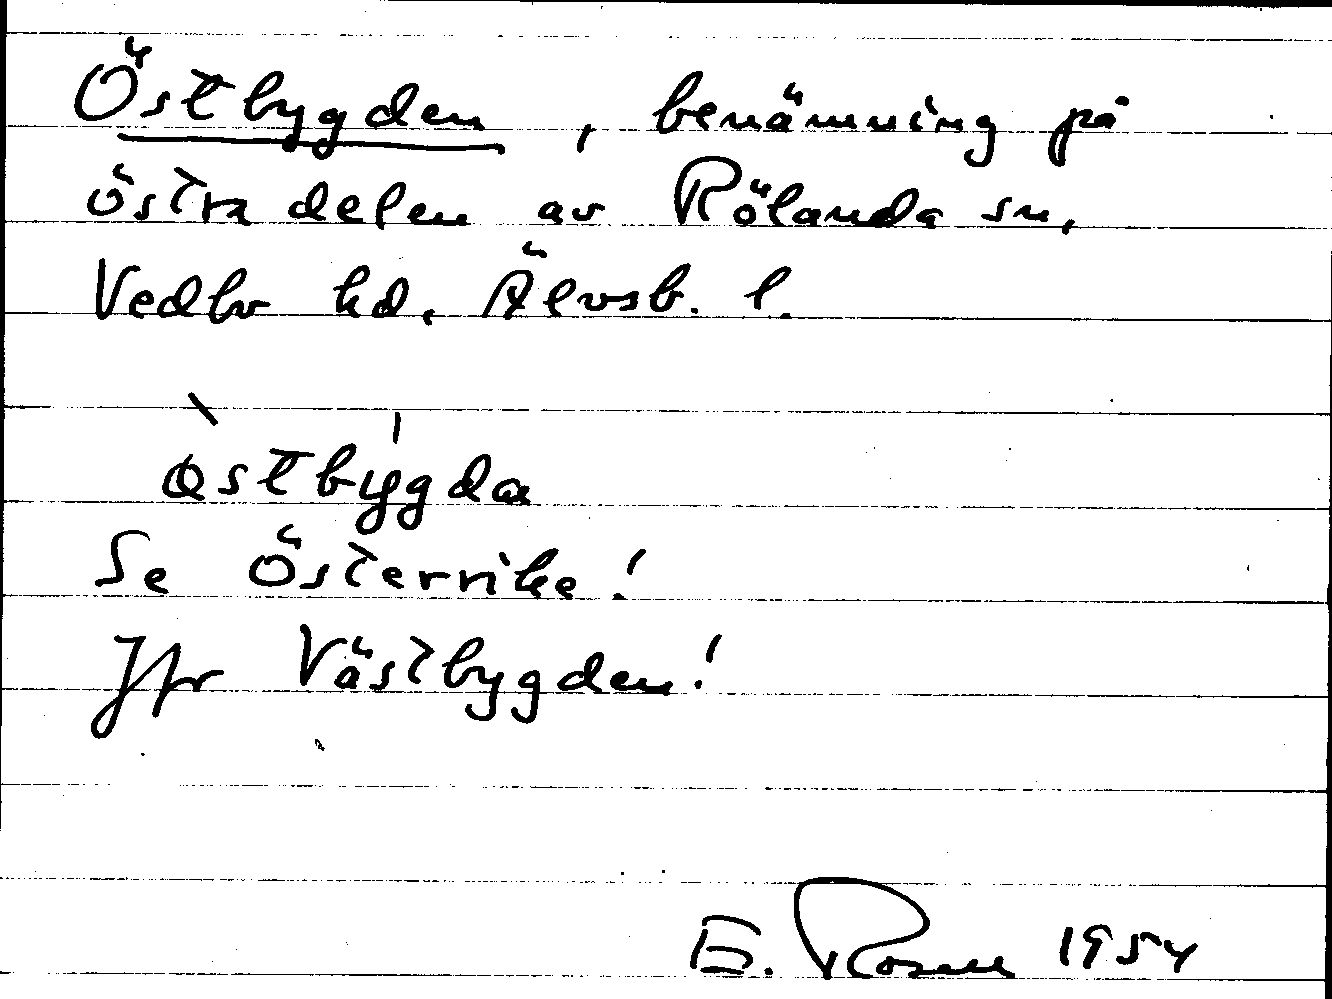 Östbygden, benämning på
östra delen av Rölanda sn,
Vedbo hd. Älvsb. l.
östbygda
Se Österrike!
Jfr Västbygden!
E. Rosen 1954